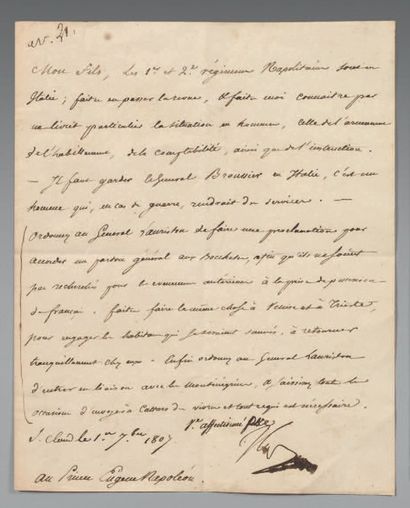 av. 21.
Mon fils, Les 1er et 2e régimens Napolitains sont en
Italie; faites en passer la revue, & faites moi connaître par
un livret particulier la situation en hommes, celle de l'armement
de l'habillement, de la comptabilité, ainsi que de l'instruction.
— Il faut garder le Général Broussier en Italie, c'est un
homme qui, en cas de guerre, rendrait des services. —
Ordonnez au Général Lauriston de faire une proclamation pour
accorder un pardon général aux Bocchais, afin qu'ils ne soient
pas recherchés pour les évènemens antérieurs à la prise de possession
des français. faites faire la même chose à Venise et à Trieste,
pour engager les habitans qui se seraient sauvés, à retourner
tranquillement chez eux — Enfin ordonnez au Général Lauriston
d'entrer en liaison avec les Montenegrins, & saisissez toutes les
occasions d'envoyer à Cattaro des vivres et tout ce qui est nécessaire.
St Cloud le 1er 7bre 1807
Vre affectionné père
au Prince Eugène Napoléon.